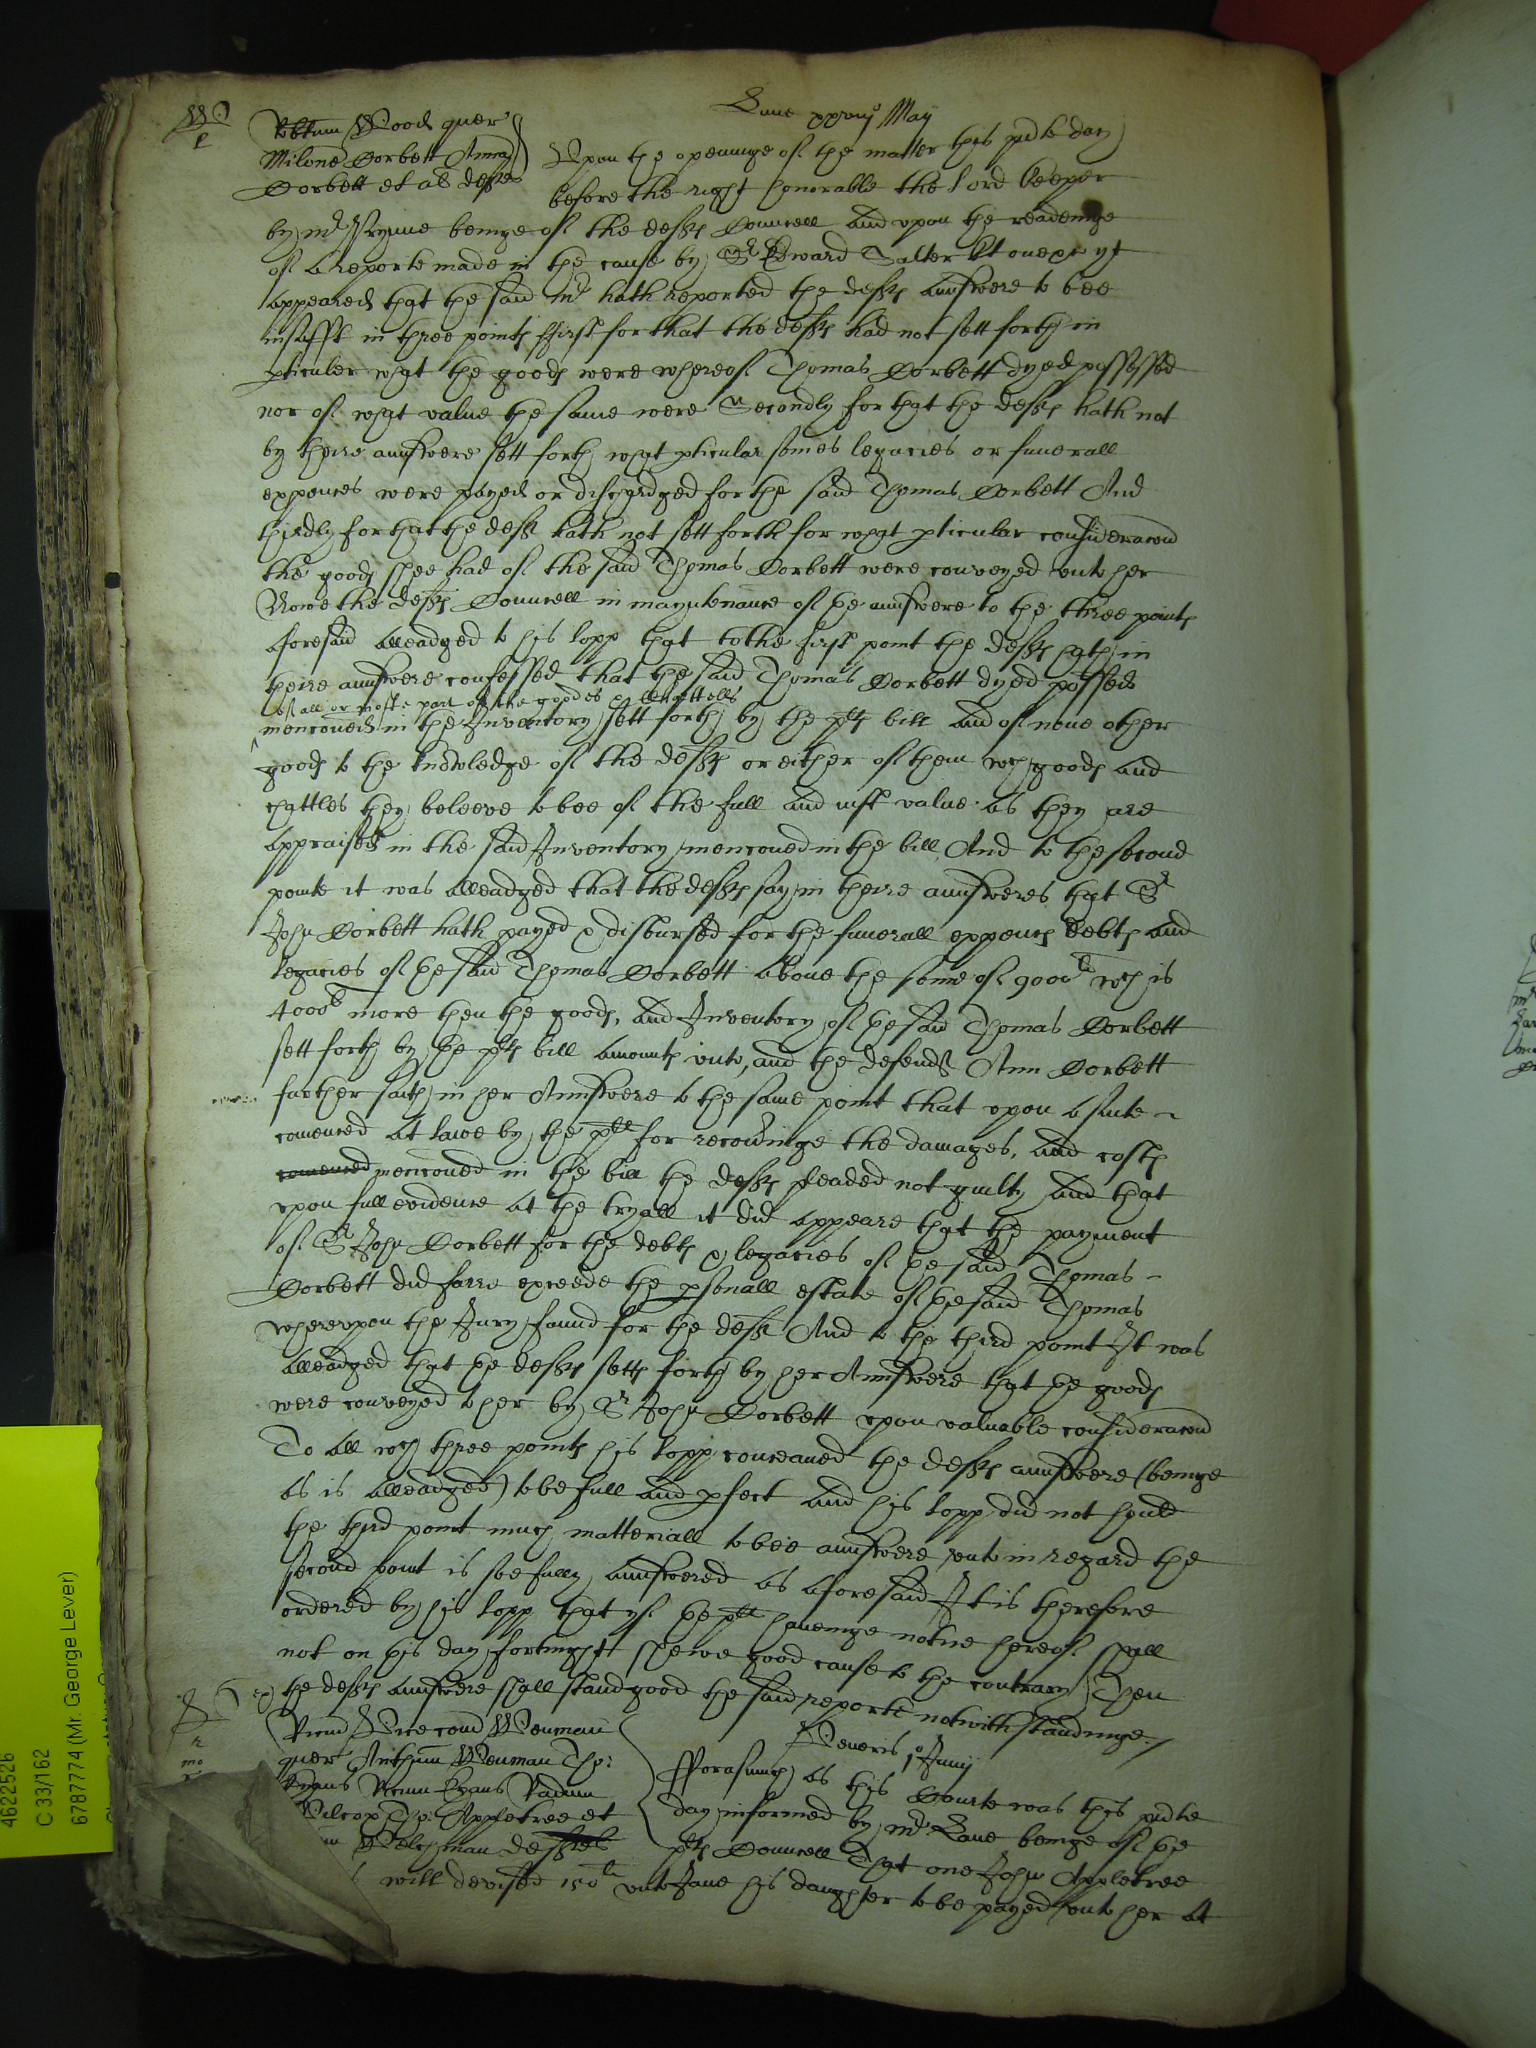 Lune xxviij May
Robtum Wood quer
Milone Corbett Anna
Corbett et al deftes
Upon the openinge of the matter this pnte day
before the right honorable the Lord Keeper
by mr Wynne beinge of the defts Councell and upon the readeinge
of a reporte made in the cause by Sr Edward Salter kt one &c yt
appeared that the said mr hath reported the defts aunswere to bee
insufft in three points ffirst for that the defts had not sett forth in
pticuler what the goods were whereof Thomas Corbett dyed possessed
nor of what value the same were Secondly for that the defts hath not
by theire aunswere sett forth what pticular somes legacies or funerall
expences were payed or discharged for the said Thomas Corbett And
thirdly for that the deft hath not sett forth for what pticular consideracon
the goods shee had of the said Thomas Corbett were conveyed unto her
Nowe the defts Councell in mayntenance of the aunswere to the three points
aforesaid alleadged to his Lopp that to the first point the defts hath in
theire aunswere confessed that the said Thomas Corbett dyed possessed
of all or moste part of the goodes & Chattells
menconed in the Inventory sett forth by the plts bill and of none other
goods to the knowledge of the defts or either of them wch goods and
chattles they beleeve to bee of the full and iust value as they are
appraised in the said Inventory menconed in the bill And to the second
pointe it was alleadged that the defts say in theire aunsweres that Sr
John Corbett hath payed & disbursed for the funerall expences debts and
legacies of the said Thomas Corbett above the some of 9000li wch is
4000li more then the goods, and Inventory of the said Thomas Corbett
sett forth by the plts bill amounts unto, and the defendt Ann Corbett
further saith in her Aunswere to the same point that upon a suite
comenced at lawe by the plt for recoveringe the damages, and costs
comenced menconed in the bill the defts pleaded not guilty and that
upon full evidence at the tryall it did appeare that the payment
of Sr John Corbett for the debts & legacies of the said Thomas
Corbett did farre exceede the psonall estate of the said Thomas
whereupon the Jury found for the deft And to the third point It was
alleadged that the defts setts forth by her Aunswere that the goods
were conveyed to her by Sr John Corbett upon valuable consideracon
To all wch three points his Lopp conceaved the defts aunswere (beinge
as is alleadged) to be full and pfect and his Lopp did not hould
the third point much matteriall to bee aunswere unto in regard the
second point is soe fully aunswered as aforesaid It is therefore
ordered by his Lopp that yf the plt haveinge notice hereof shall
not on this day fortnight shewe good cause to the contrary Then
the defts aunswere shall stand good the said reporte notwithstandinge
Veneris 1o Junij
Ricum Vice com Wenman
quer Anthum Wenman Tho:
Evans Ricum Evans Radum
Wilcox Tho: Appletree et
Welchman deftes
fforasmuch as this Courte was this pnte
day informed by mr Lane beinge of the
plts Councell That one John Appletree
will devised 150li unto Jane his daughter to be payed unto her at
4622526
C 33/162
6787774 (Mr. George Lever)